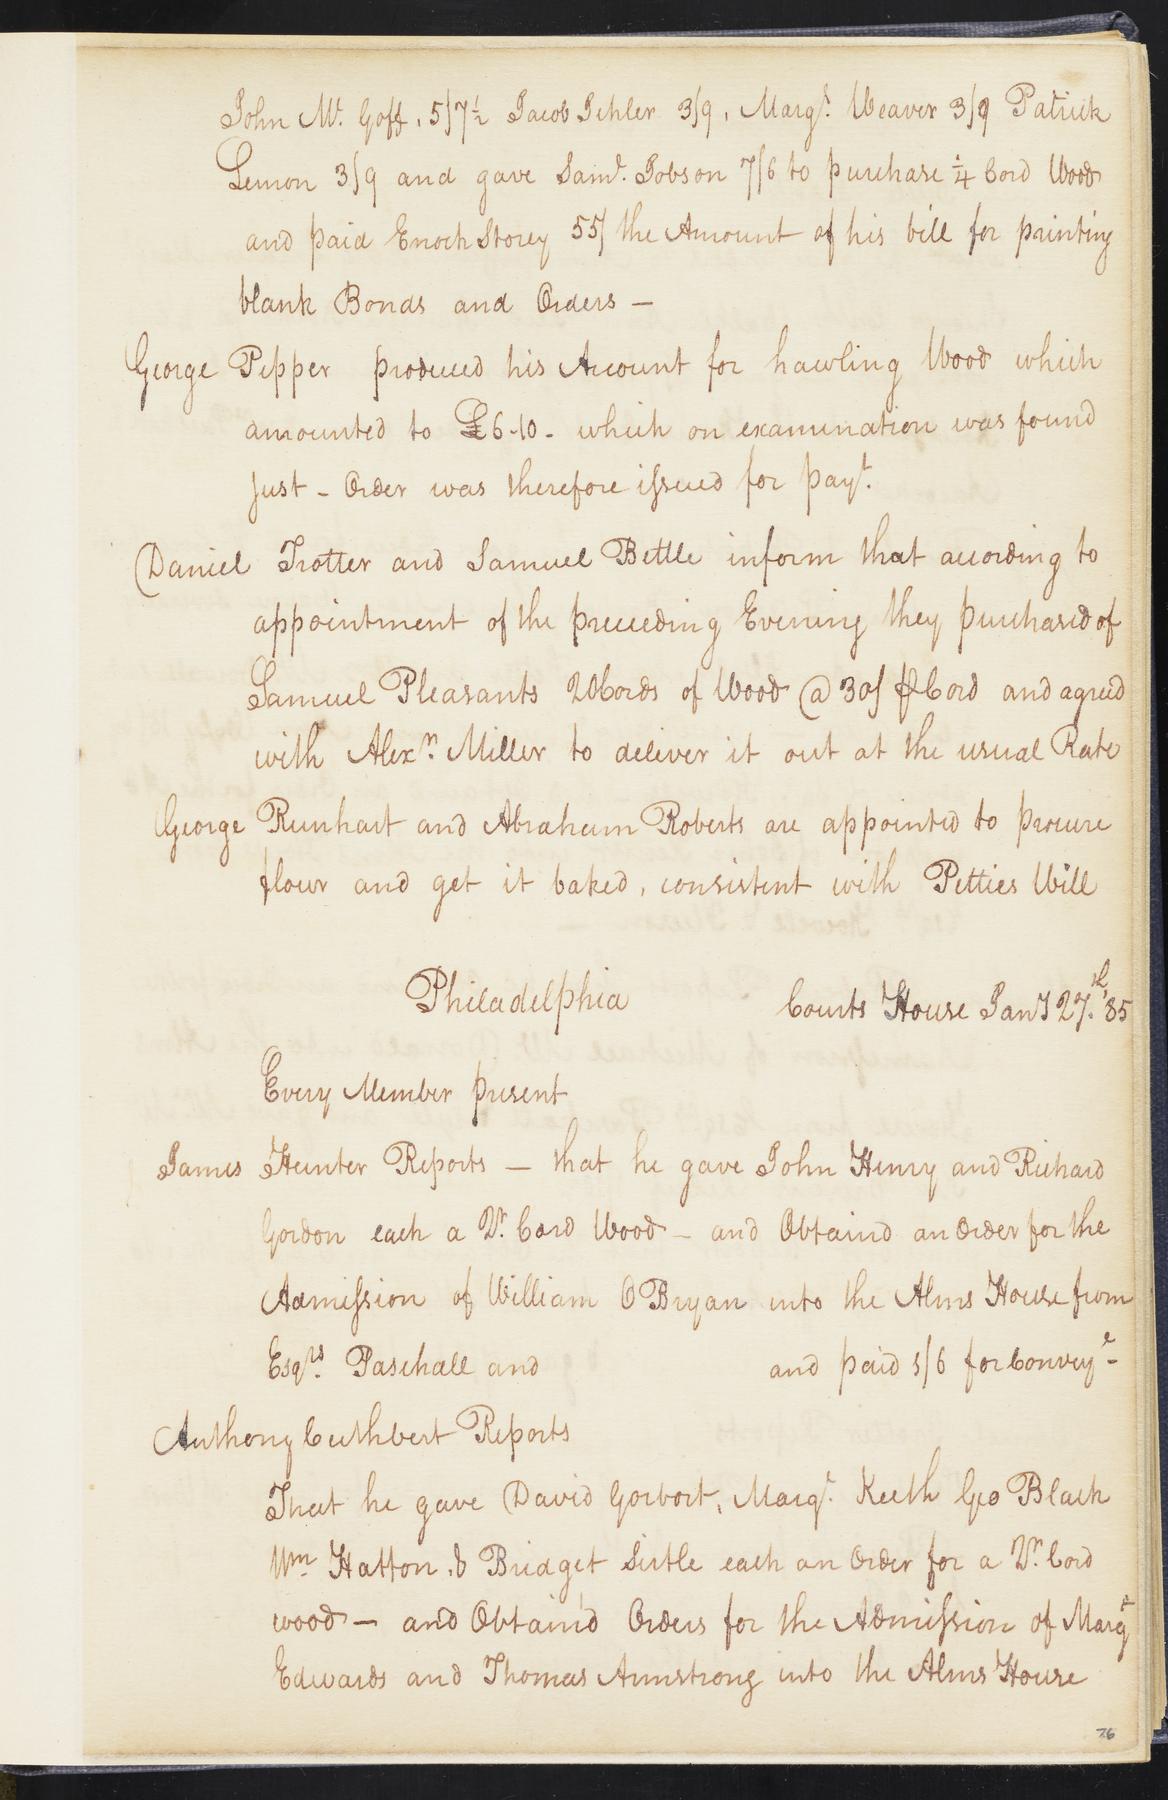 John Mc. Goff, 5/7½ Jacob Sehler 3/9, Margt. Weaver 3/9 Patrick
Lemon 3/9 and gave Saml. Jobson 7/6 to purchase ¼ Cord Wood
and paid Enoch Storey 55/ the Amount of his bill for printing
blank Bonds and Orders —
George Pepper produced his Account for hawling Wood which
amounted to £6-10- which on examination was found
just - Order was therefore issued for payt.
Daniel Trotter and Samuel Bettle inform that according to
appointment of the preceeding Evening they purchased of
Samuel Pleasants 20 Cords of Wood @ 30/ ⅌ Cord and agreed
with Alexr. Miller to deliver it out at the usual Rate
George Runhart and Abraham Roberts are appointed to procure
flour and get it baked, consistent with Petties Will
Philadelphia Courts House Jany 27.th '85
Every Member present
James Hunter Reports — that he gave John Henry and Richard
Gordon each a Qr. Cord Wood — and Obtaind an Order for the
Admission of William OBryan into the Alms House from
Esqrs. Paschall and and paid 5/6 for Conveye-
Anthony Cuthbert Reports
That he gave David Gorbort, Margt. Keith Geo Black
Wm. Hatton, & Bridget Sirtle each an Order for a Qr. Cord
wood — and Obtain'd Orders for the Admission of Margt
Edwards and Thomas Armstrong into the Alms House
76